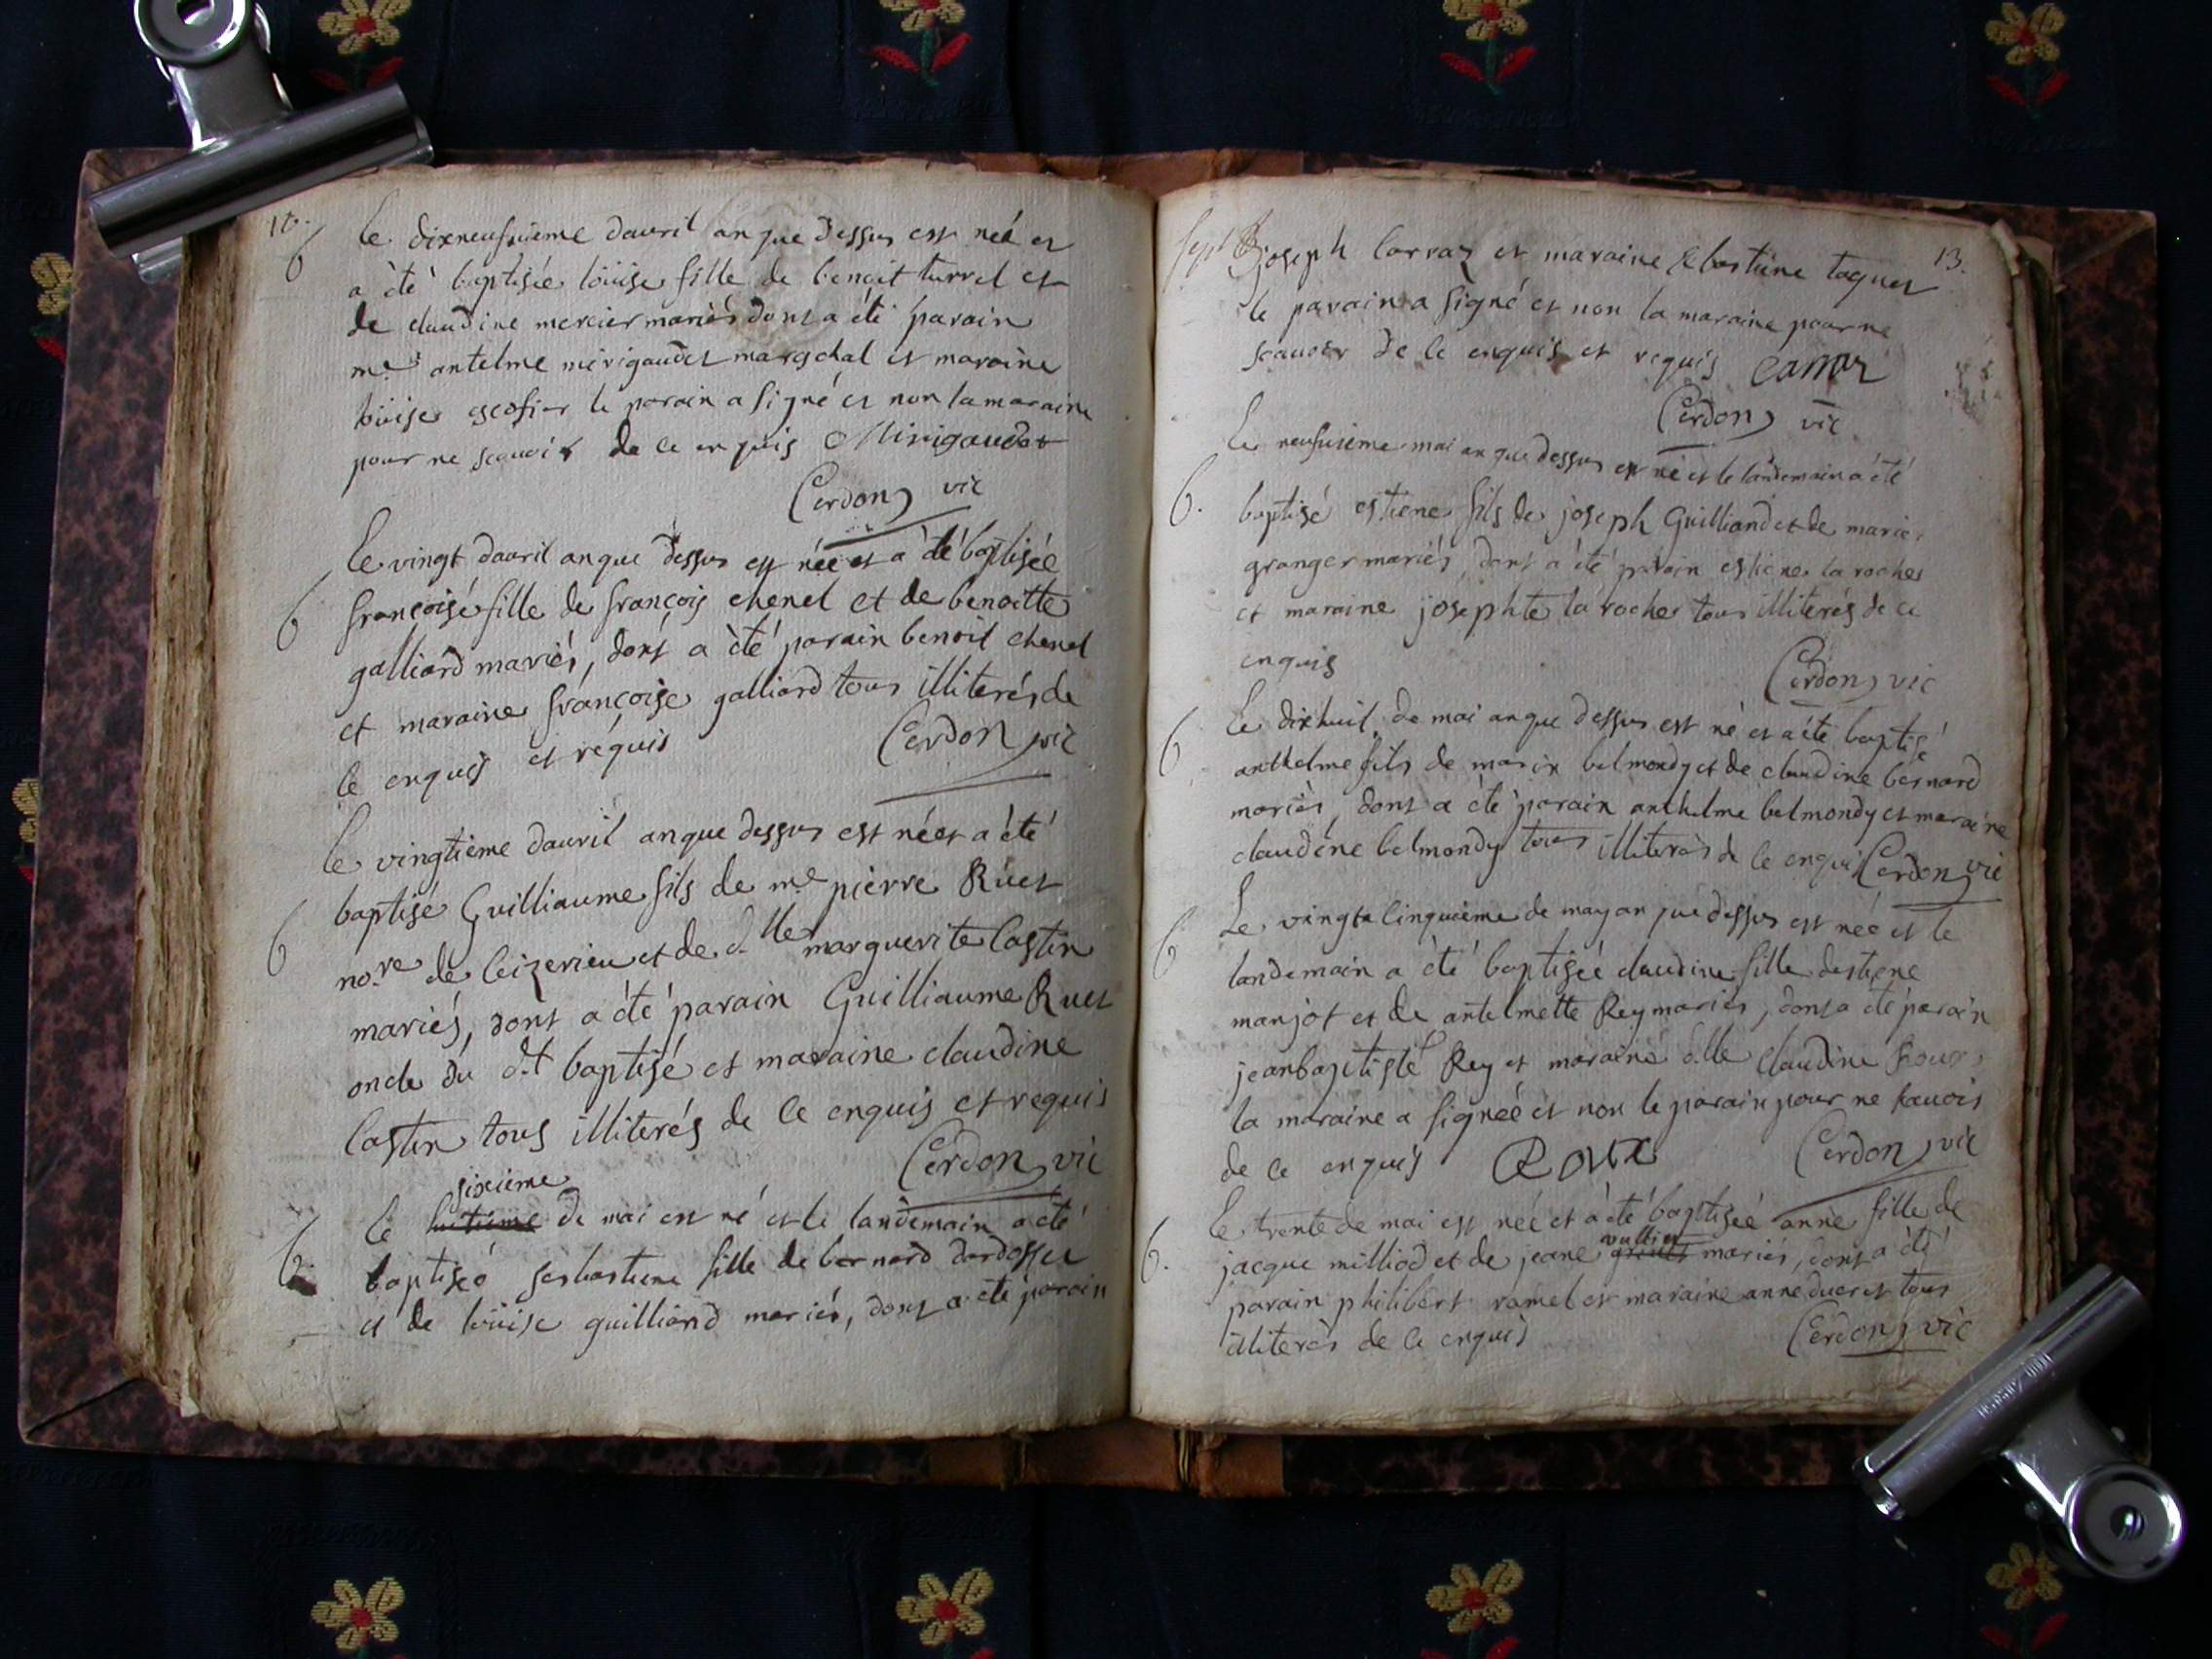 b
le dixneufuieme dauril an que dessus est néé et
a èté baptisée loüise fille de benoit turrel et
de claudine mercier mariés dont a été parain
me antelme mérigaudet mareschal et maraine
loüise escofier le parain a signé et non la maraine
pour ne scauoir de ce enquis Mirigaudet
Cerdon vic
le vingt dauril an que dessus est née et a été baptisée
b
françoise fille de françois chenel et de benoitte
galliard mariés, dont a èté parain benoit chenel
et maraine françoise galliard tous illiterés de
ce enquis et réquis Cerdon vic
le vingtieme dauril an que dessus est né et a èté
baptisé Guilliaume fils de me pierre Ruet
b
no.re de Ceizerieu et de d.lle marguerite Castin
mariés, dont a été parain Guilliaume Ruet
oncle du d.t baptisé et maraine claudine
Castin tous illiterés de ce enquis et requis
Cerdon vic
sixieme
b
le huitieme de mai est né et le landemain a èté
baptiseé sesbastiene fille de bernard dardossel
et de loüise guilliand mariés, dont a èté parain
13.
joseph Carraz et maraine sebastiene taquet
le parain a signé et non la maraine pour ne
scauoir de ce enquis et requis Carraz
Cerdon vic
le neufuieme mai an que dessus est né et le landemain a èté
b.
baptisé estiene fils de joseph Guilliand et de marie
granger mariés, dont a èté parain estiene la roche
et maraine josephte la roche tous illiterés de ce
enquis Cerdon vic
b
le dixhuit de mai an que dessus est né et a èté baptisé
anthelme fils de marin belmondy et de claudine bernard
mariés, dont a èté parain anthelme belmondy et maraine
claudine belmondy tous illiterés de ce enquis Cerdon vic
b
Le vingt Cinquieme de may an que dessus est néé et le
landemain a èté baptiseé claudine fille destiene
manjot et de antelmette Rey mariés, dont a èté parain
jeanbaptiste Rey et maraine d.lle claudine Roux
la maraine a signeé et non le parain pour ne scauoir
de ce enquis Roux Cerdon vic
le trente de mai est neé et a èté baptiseé anne fille de
b.
jacque milliod et de jeane vullier mariés, dont a èté
parain philibert ramel et maraine anne ducret tous
illiterés de ce enquis Cerdon vic